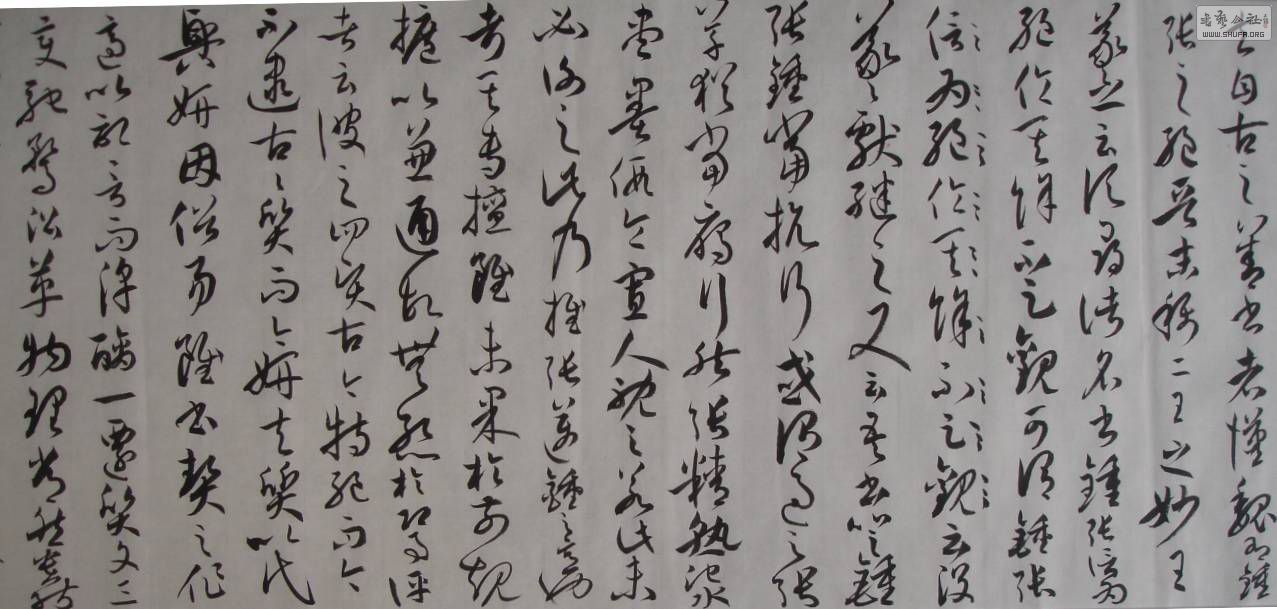 夫自古之善書者漢魏有鍾
張之絕晉末稱二王之妙王
羲之云頃尋諸名書鍾張信為
絕倫其餘不足觀可謂鍾張
信為絕倫其餘不足觀云沒
羲獻繼之又云吾書比之鍾
張鍾當抗行或謂過之張
草猶當雁行然張精熟池水
盡墨假令寡人耽之若此未
必謝之此乃推張邁鍾之意也
考其專擅雖未果於前規
摭以兼通故無慚於即事評
者云彼之四賢古今特絕而今
不逮古古質而今妍夫質以代
興妍因俗易雖書契之作
適以記言而淳醨一遷質文三
變馳騖沿革物理常然貴能
書藝公社
WWW.SHUFA.ORG